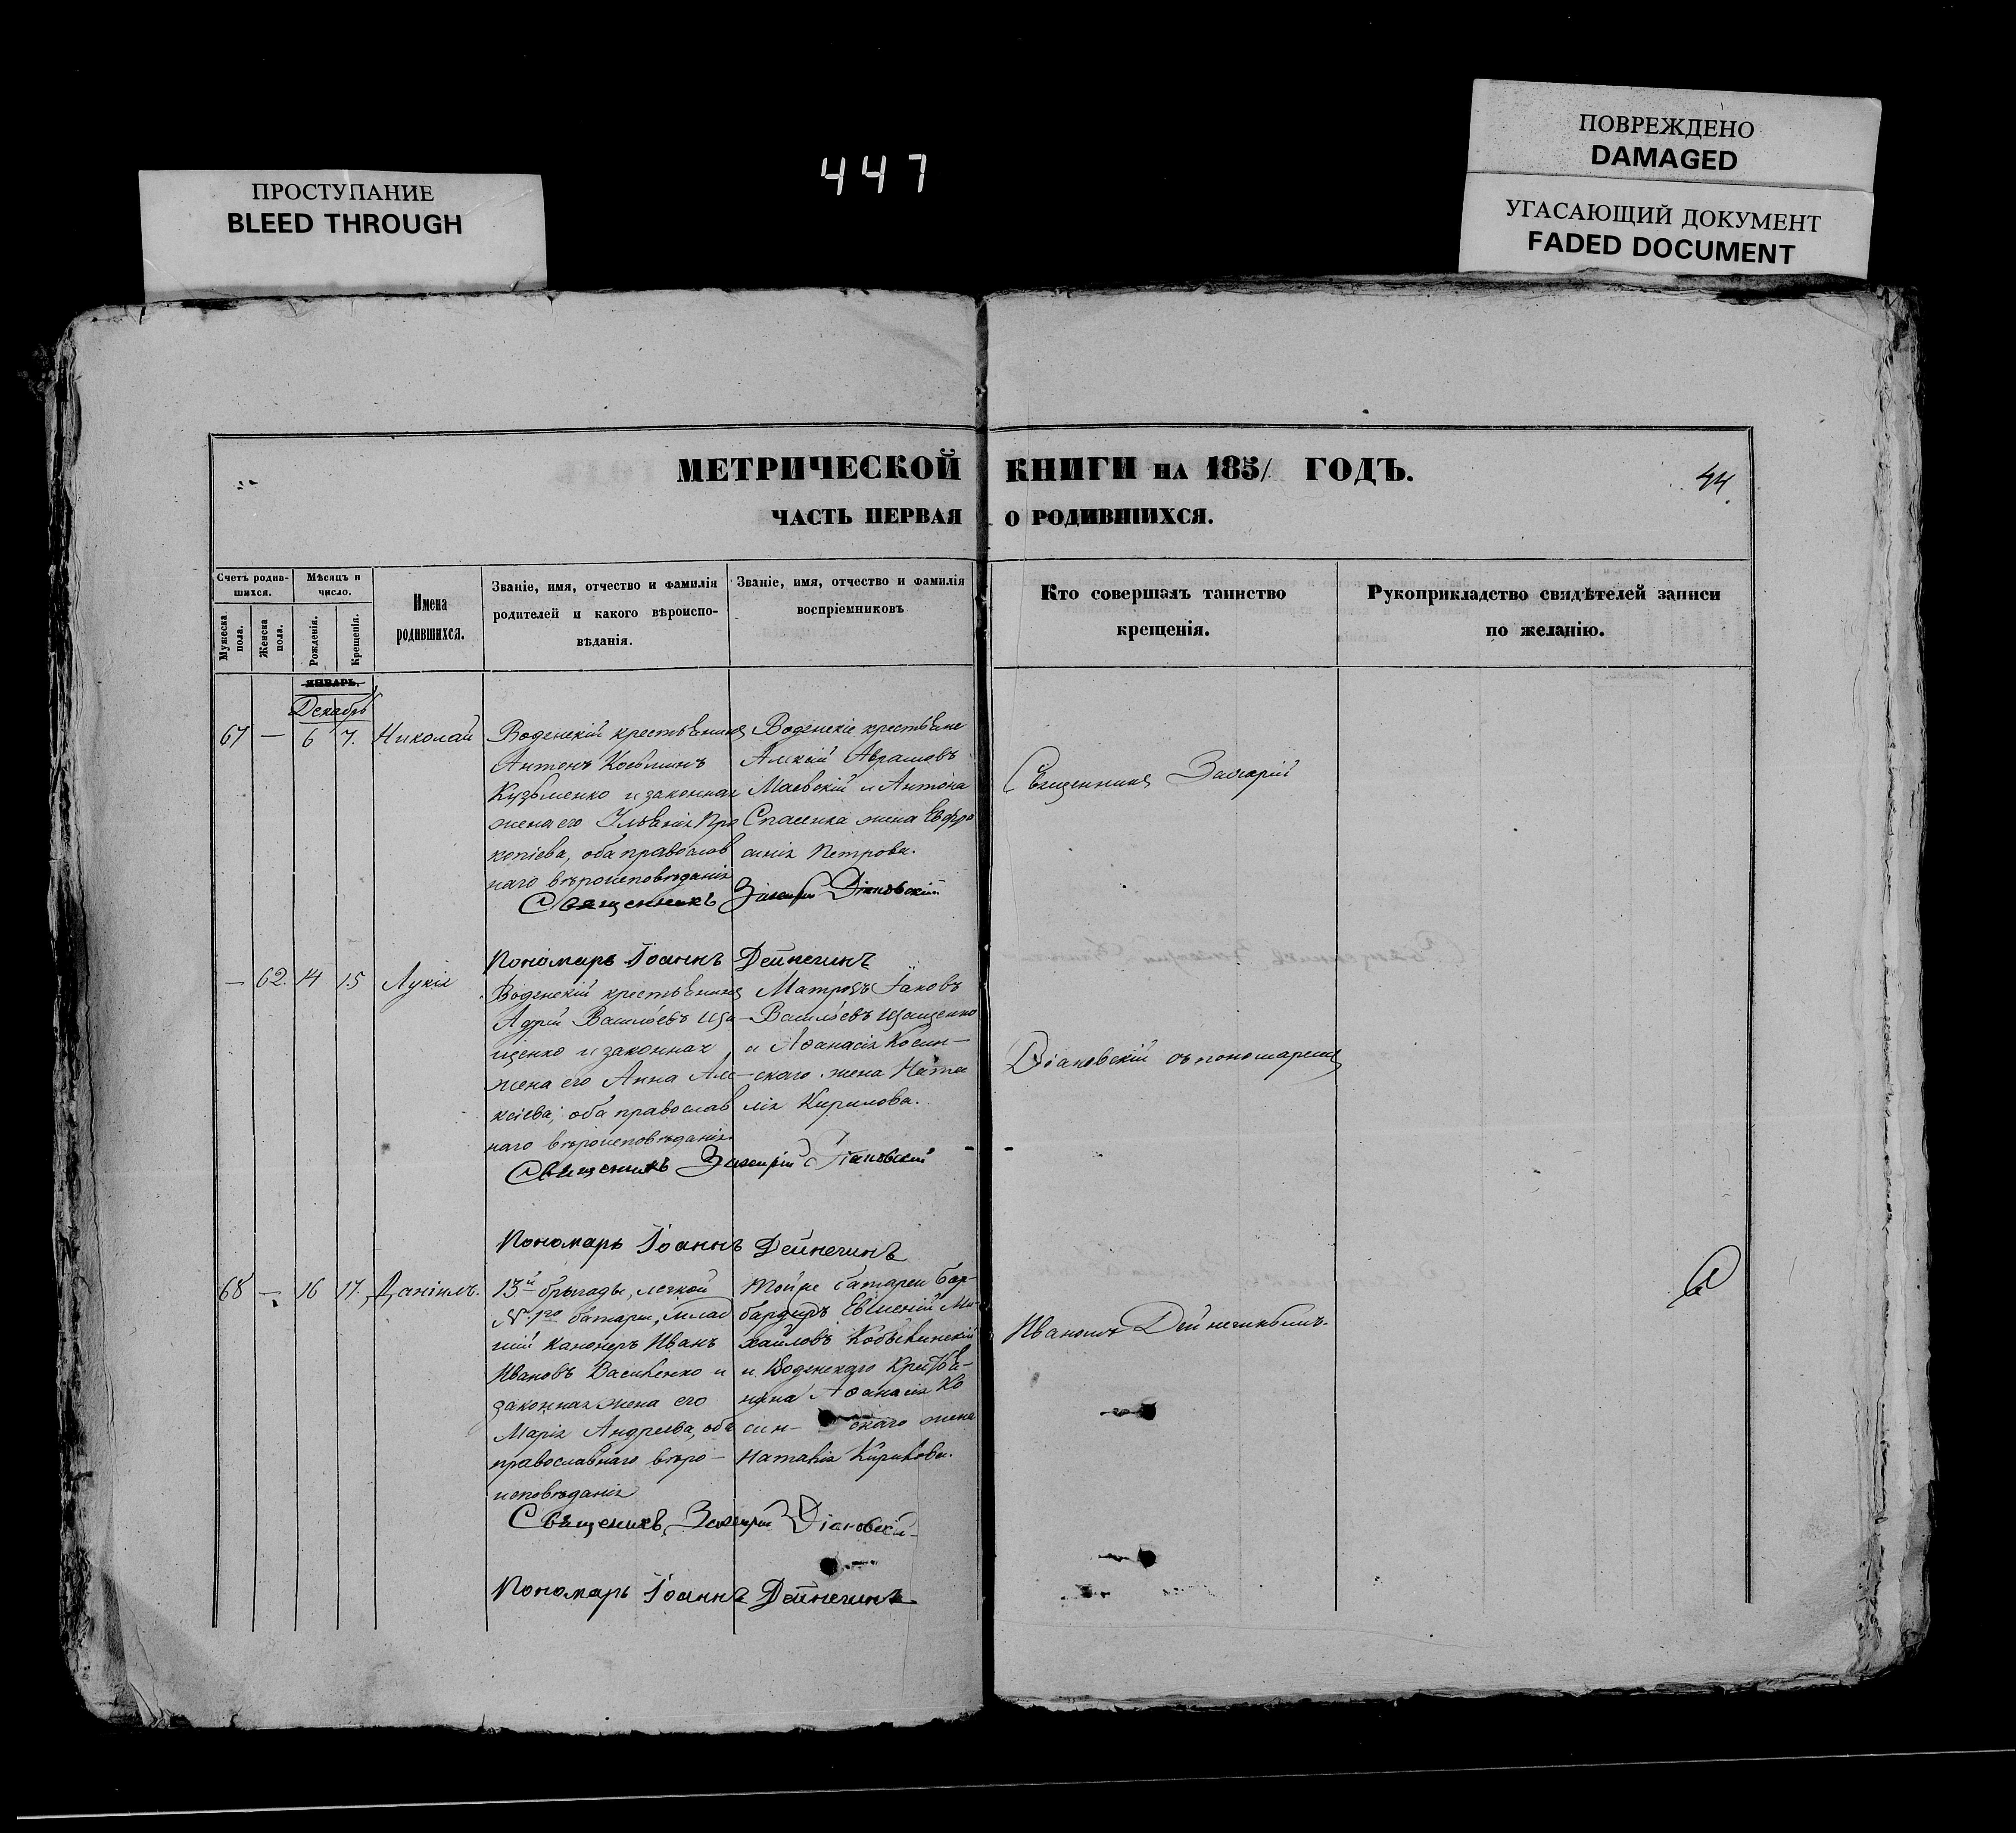 ПРОСТУПАНИЕ
BLEED THROUGH
447
ПОВРЕЖДЕНО
DAMAGED
УГАСАЮЩИЙ ДОКУМЕНТ
FADED DOCUMENT
МЕТРИЧЕСКОЙ КНИГИ НА 1851 ГОДЪ.
44.
ЧАСТЬ ПЕРВАЯ О РОДИВШИХСЯ.
Счетъ родив-
шихся.
Мужеска пола.
Женска пола.
Мѣсяцъ и
число.
Рожденія.
Крещенія.
Имена
родившихся.
Званіе, имя, отчество и фамилія
родителей и какого вѣроиспо-
вѣданія.
Званіе, имя, отчество и фамилія
воспріемниковъ
Кто совершалъ таинство
крещенія.
Рукоприкладство свидѣтелей записи
по желанію.
ЯНВАРЬ.
Декабрь
67 — 6 7. Николай
Воденскій крестьянинъ
Антонъ Косминъ
Кузьменко и законная
жена его Ульянія Про
копіева, оба православ
наго вѣроисповѣданія
Воденскіе крестьяне
Алексій Аврамовъ
Маевскій и Антона
Спасенка жена Евфро
синія Петрова.
Священникъ Захарій Діяковскій
Пономарь Іоаннъ Дейнечинъ
— 62. 14 15 Лукія
Воденскій крестьянинъ
Адрій Васильевъ Ща-
щенко и законная
жена его Анна Але-
ксіева, оба православ
наго вѣроисповѣданія
Матрозъ Іаковъ
Васильевъ Щащенко
и Аѳанасія Косин-
скаго жена Ната
лія Кирилова.
Священикъ Захарій Діяковскій
Пономарь Іоаннъ Дейнечинъ
68 — 16 17. Даніилъ.
13й бригады, легкой
№ 1го батареи, млад
шій канонеръ Иванъ
Ивановъ Василенко и
законная жена его
Марія Андреева, оба
православнаго вѣро-
исповѣданія
Тойже батареи бар-
бардиръ Евгеній Ми-
хайловъ
и Воденскаго крестья-
нина Аѳанасія Ко
син- скаго жена
Наталія Кирилова.
Священикъ Захарій Діяковскій
Пономарь Іоаннъ Дейнечинъ
Священникъ Захарій
Діаковскій съ пономаремъ
Иваномъ Дейнечинымъ.